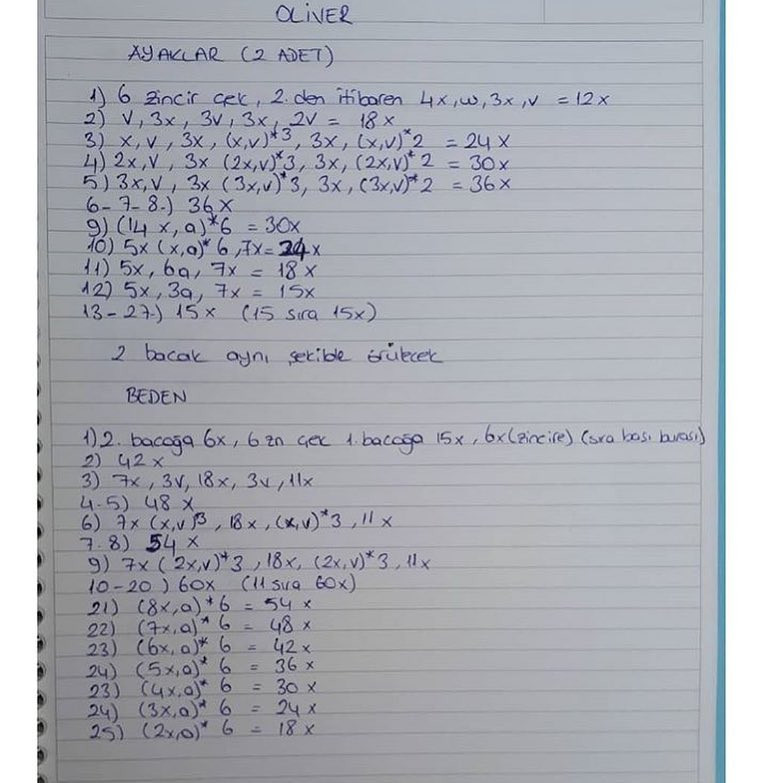 OLiVER
AYAKLAR (2 ADET)
1) 6 zincir çek, 2.den itibaren 4x, w, 3x, v = 12x
2) V, 3x, 3v, 3x, 2V = 18x
3) x, v, 3x, (x,v)*3, 3x, (x,v)*2 = 24x
4) 2x, v, 3x (2x,v)*3, 3x, (2x,v)*2 = 30x
5) 3x, v, 3x (3x,v)*3, 3x, (3x,v)*2 = 36x
6-7-8-) 36x
9) (14 x, a)*6 = 30x
10) 5x (x,a)*6, 7x= 24x
11) 5x, 6a, 7x = 18x
12) 5x, 3a, 7x = 15x
13-27-) 15x (15 sıra 15x)
2 bacak aynı şekilde örülecek
BEDEN
1) 2. bacağa 6x, 6 zn çek 1. bacağa 15x, 6x(zincire) (sıra başı burası)
2) 42x
3) 7x, 3v, 18x, 3v, 11x
4-5) 48 x
6) 7x (x,v)*3, 18x, (x,v)*3, 11x
7-8) 54 x
9) 7x (2x,v)*3, 18x, (2x,v)*3, 11x
10-20) 60x (11 sıra 60x)
21) (8x,a)*6 = 54x
22) (7x,a)*6 = 48x
23) (6x,a)*6 = 42x
24) (5x,a)*6 = 36x
23) (4x,a)*6 = 30x
24) (3x,a)*6 = 24x
25) (2x,a)*6 = 18x